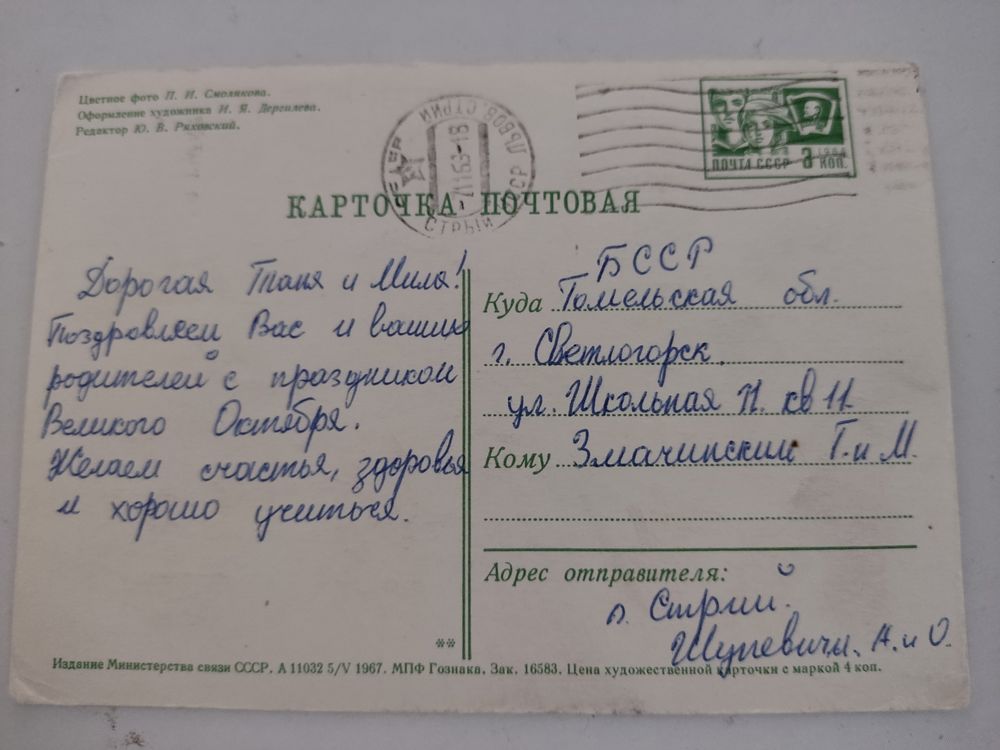 Цветное фото П. И. Смолякова.
Оформление художника И. Я. Дергилева.
Редактор Ю. В. Ряховский.
ЛЬВОВ. СТРИЙ
СТРЫЙ
ПОЧТА СССР
КОП.
КАРТОЧКА ПОЧТОВАЯ
Дорогая Таня и Мила!
Поздравляем Вас и ваших
родителей с праздником
Великого Октября.
Желаем счастья, здоровья
и хорошо учиться.
БССР
Куда Гомельская обл.
г. Светлогорск
ул. Школьная кв 11
Кому Змачинским Т. и М.
Адрес отправителя:
г. Стрий.
А. и О.
**
Издание Министерства связи СССР. А 11032 5/V 1967. МПФ Гознака. Зак. 16583. Цена художественной карточки с маркой 4 коп.